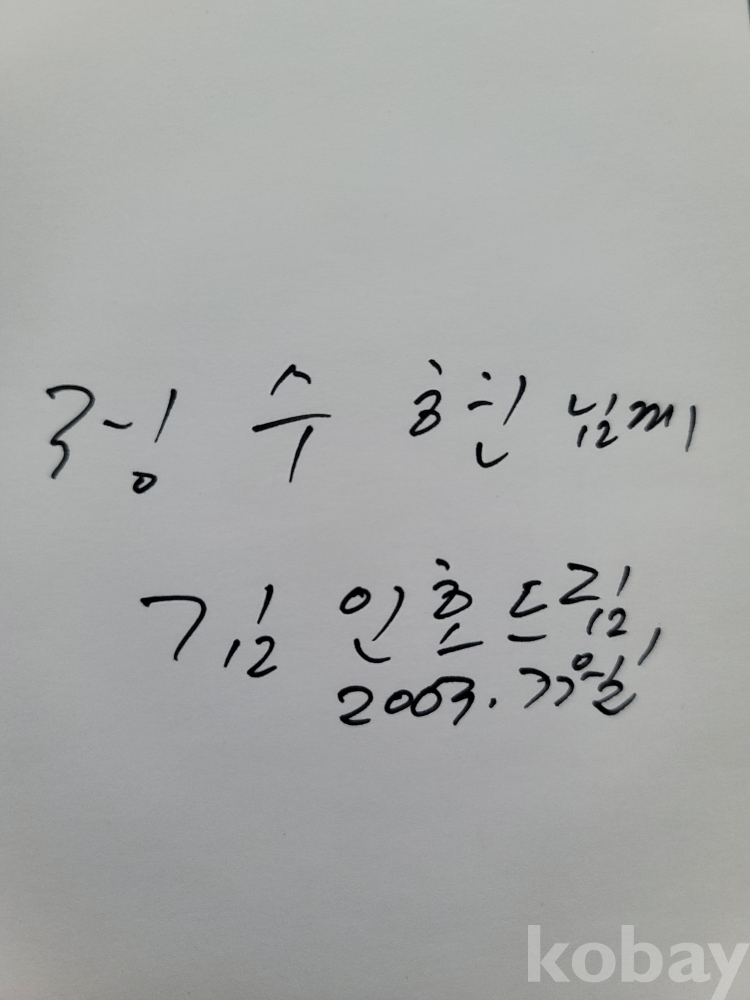 정 수 현 님께
김 인호 드림
2003. 가을